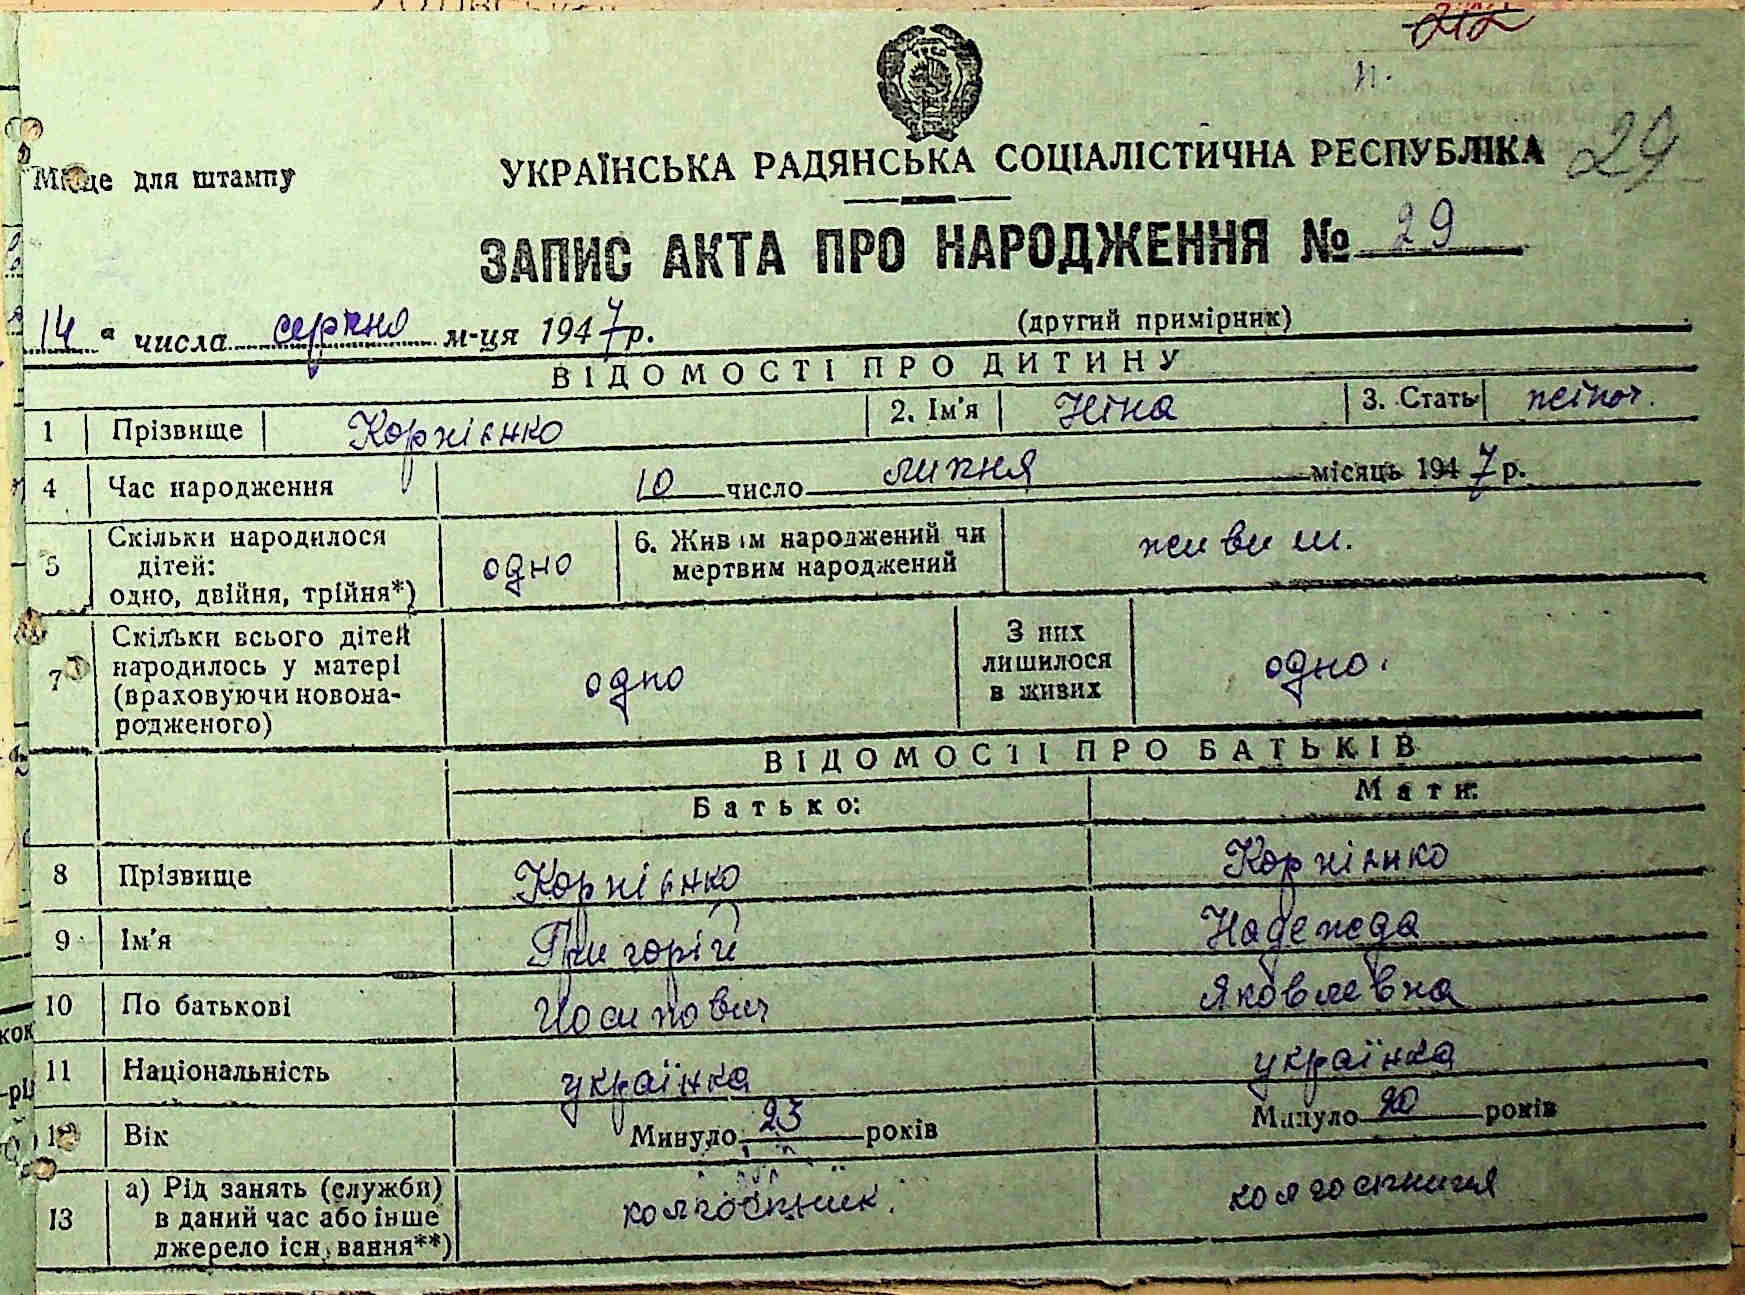 212
н.
Місце для штампу
УКРАЇНСЬКА РАДЯНСЬКА СОЦІАЛІСТИЧНА РЕСПУБЛІКА 29
ЗАПИС АКТА ПРО НАРОДЖЕННЯ № 29
14 " числа серпня м-ця 1947 р. (другий примірник)
ВІДОМОСТІ ПРО ДИТИНУ
1 Прізвище Корнієнко 2. Ім'я Ніна 3. Стать жіноч.
4 Час народження 10 число липня місяць 1947 р.
5 Скільки народилося дітей: одно, двійня, трійня*) одно 6. Живим народжений чи мертвим народжений живим.
7 Скільки всього дітей народилось у матері (враховуючи новонародженого) одно З них лишилося в живих одно.
ВІДОМОСТІ ПРО БАТЬКІВ
Батько: Мати:
8 Прізвище Корнієнко Корнієнко
9 Ім'я Григорій Надежда
10 По батькові Йосипович Яковлевна
11 Національність українка українка
12 Вік Минуло 23 років Минуло 20 років
13 а) Рід занять (служби) в даний час або інше джерело існування**) колгоспник. колгоспниця